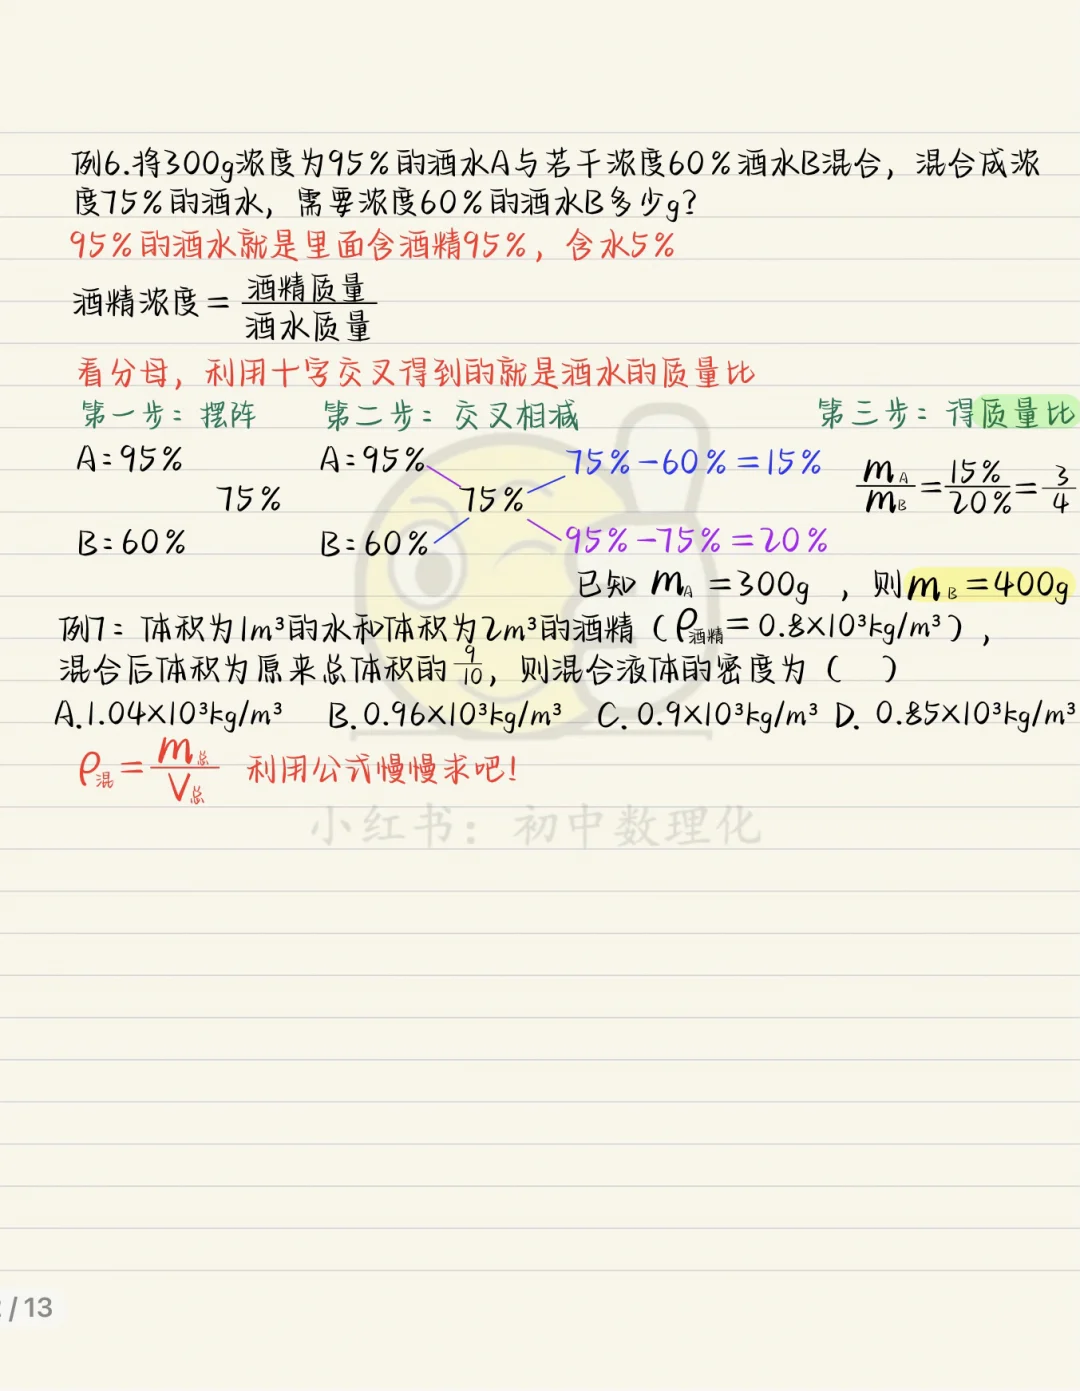 例6.将300g浓度为95%的酒水A与若干浓度60%酒水B混合，混合成浓
度75%的酒水，需要浓度60%的酒水B多少g?
95%的酒水就是里面含酒精95%，含水5%
酒精浓度=酒精质量/酒水质量
看分母，利用十字交叉得到的就是酒水的质量比
第一步：摆阵 第二步：交叉相减 第三步：得质量比
A:95% A:95% 75%-60%=15%
75% 75% mA/mB=15%/20%=3/4
B:60% B:60% 95%-75%=20%
已知 mA=300g，则mB=400g
例7：体积为1m³的水和体积为2m³的酒精（ρ酒精=0.8×10³kg/m³），
混合后体积为原来总体积的9/10，则混合液体的密度为（ ）
A.1.04×10³kg/m³ B.0.96×10³kg/m³ C.0.9×10³kg/m³ D.0.85×10³kg/m³
ρ混=m总/V总 利用公式慢慢求吧!
小红书：初中数理化
/13